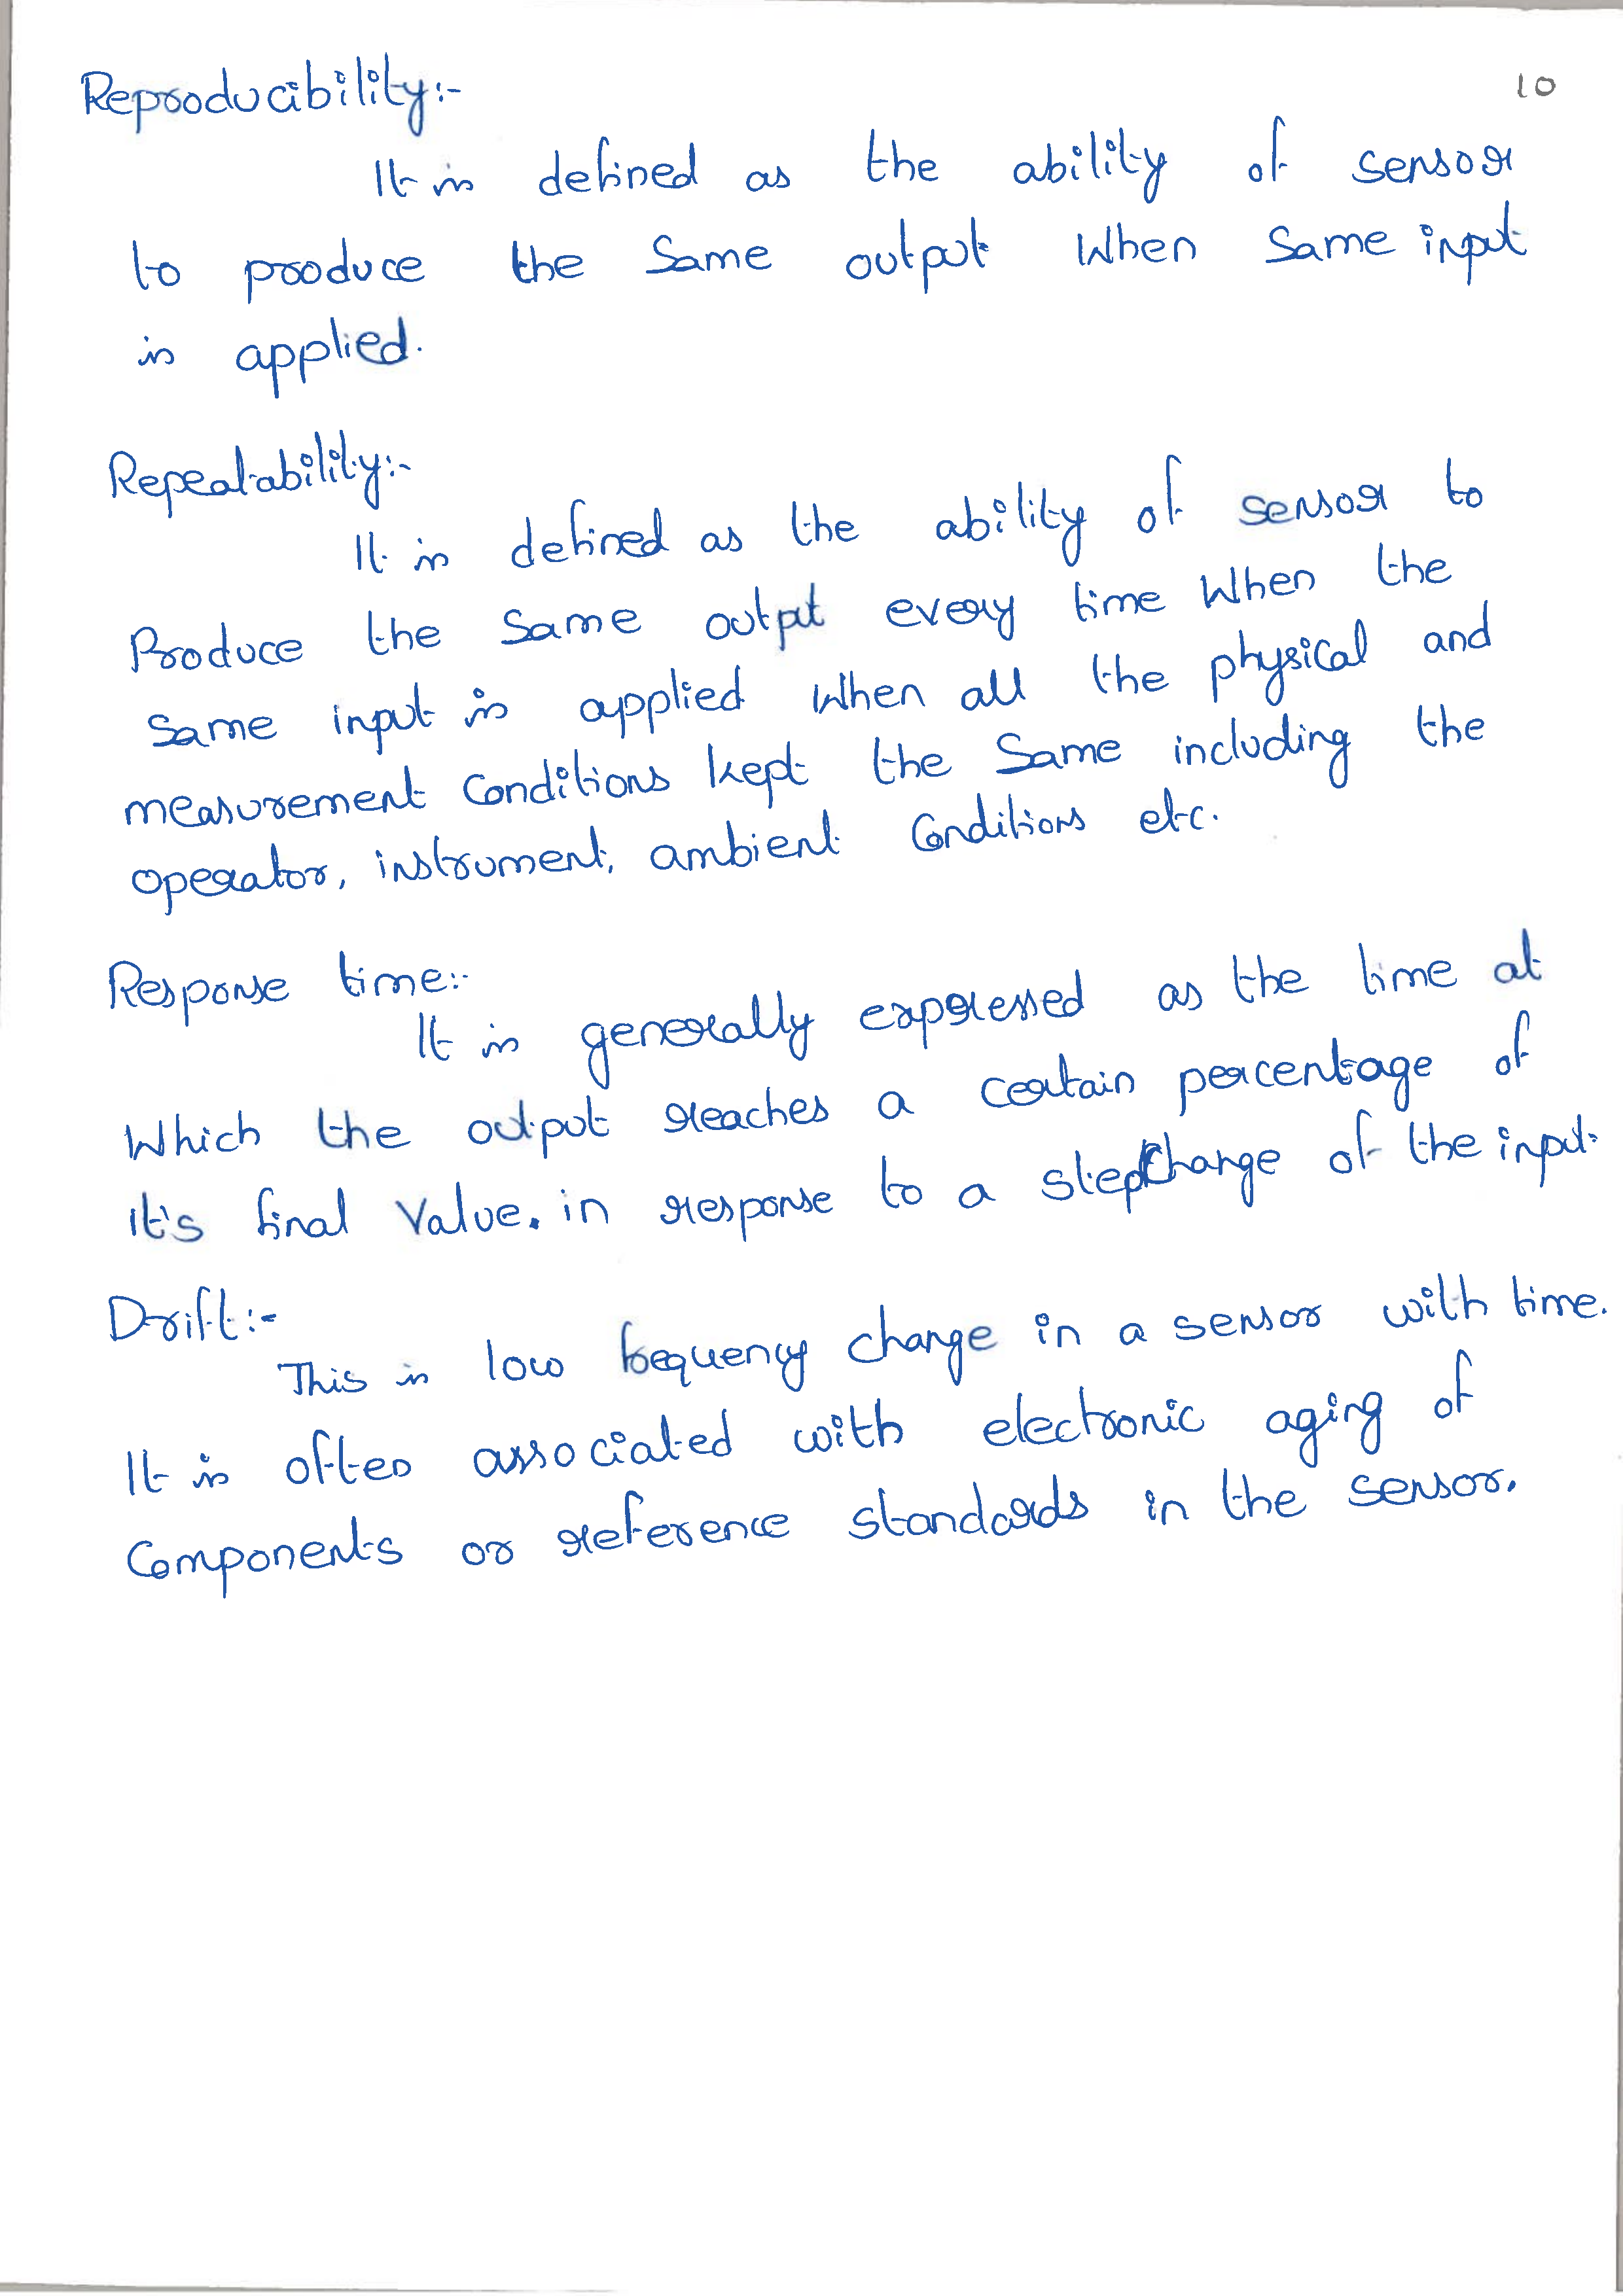 10
Reproducibility:-
It is defined as the ability of sensor
to produce the Same output When Same input
is applied.
Repeatability:-
It is defined as the ability of sensor to
Produce the Same output every time When the
Same input is applied When all the physical and
measurement Conditions kept the Same including the
operator, instrument, ambient Conditions etc.
Response time:-
It is generally expressed as the time at
Which the output reaches a certain percentage of
it's final Value. in response to a step change of the input.
Drift:-
This is low frequency change in a sensor with time.
It is often associated with electronic aging of
Components or reference standards in the sensor.